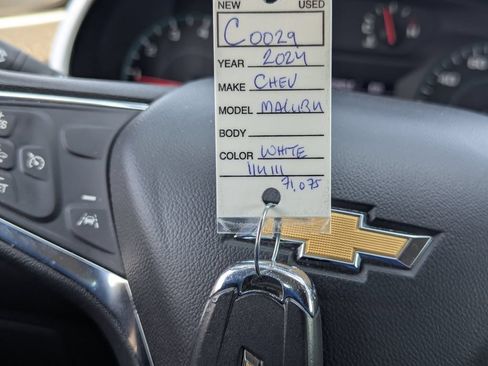 NEW USED
C0029
YEAR 2024
MAKE CHEV
MODEL MALIBU
BODY
COLOR WHITE
71,075